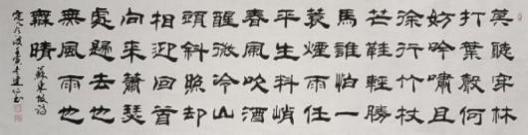 莫聽穿林
打葉聲何
妨吟嘯且
徐行竹杖
芒鞋輕勝
馬誰怕一
蓑煙雨任
平生料峭
春風吹酒
醒微冷山
頭斜照卻
相迎回首
向來蕭瑟
處歸去也
無風雨也
無晴
蘇東坡